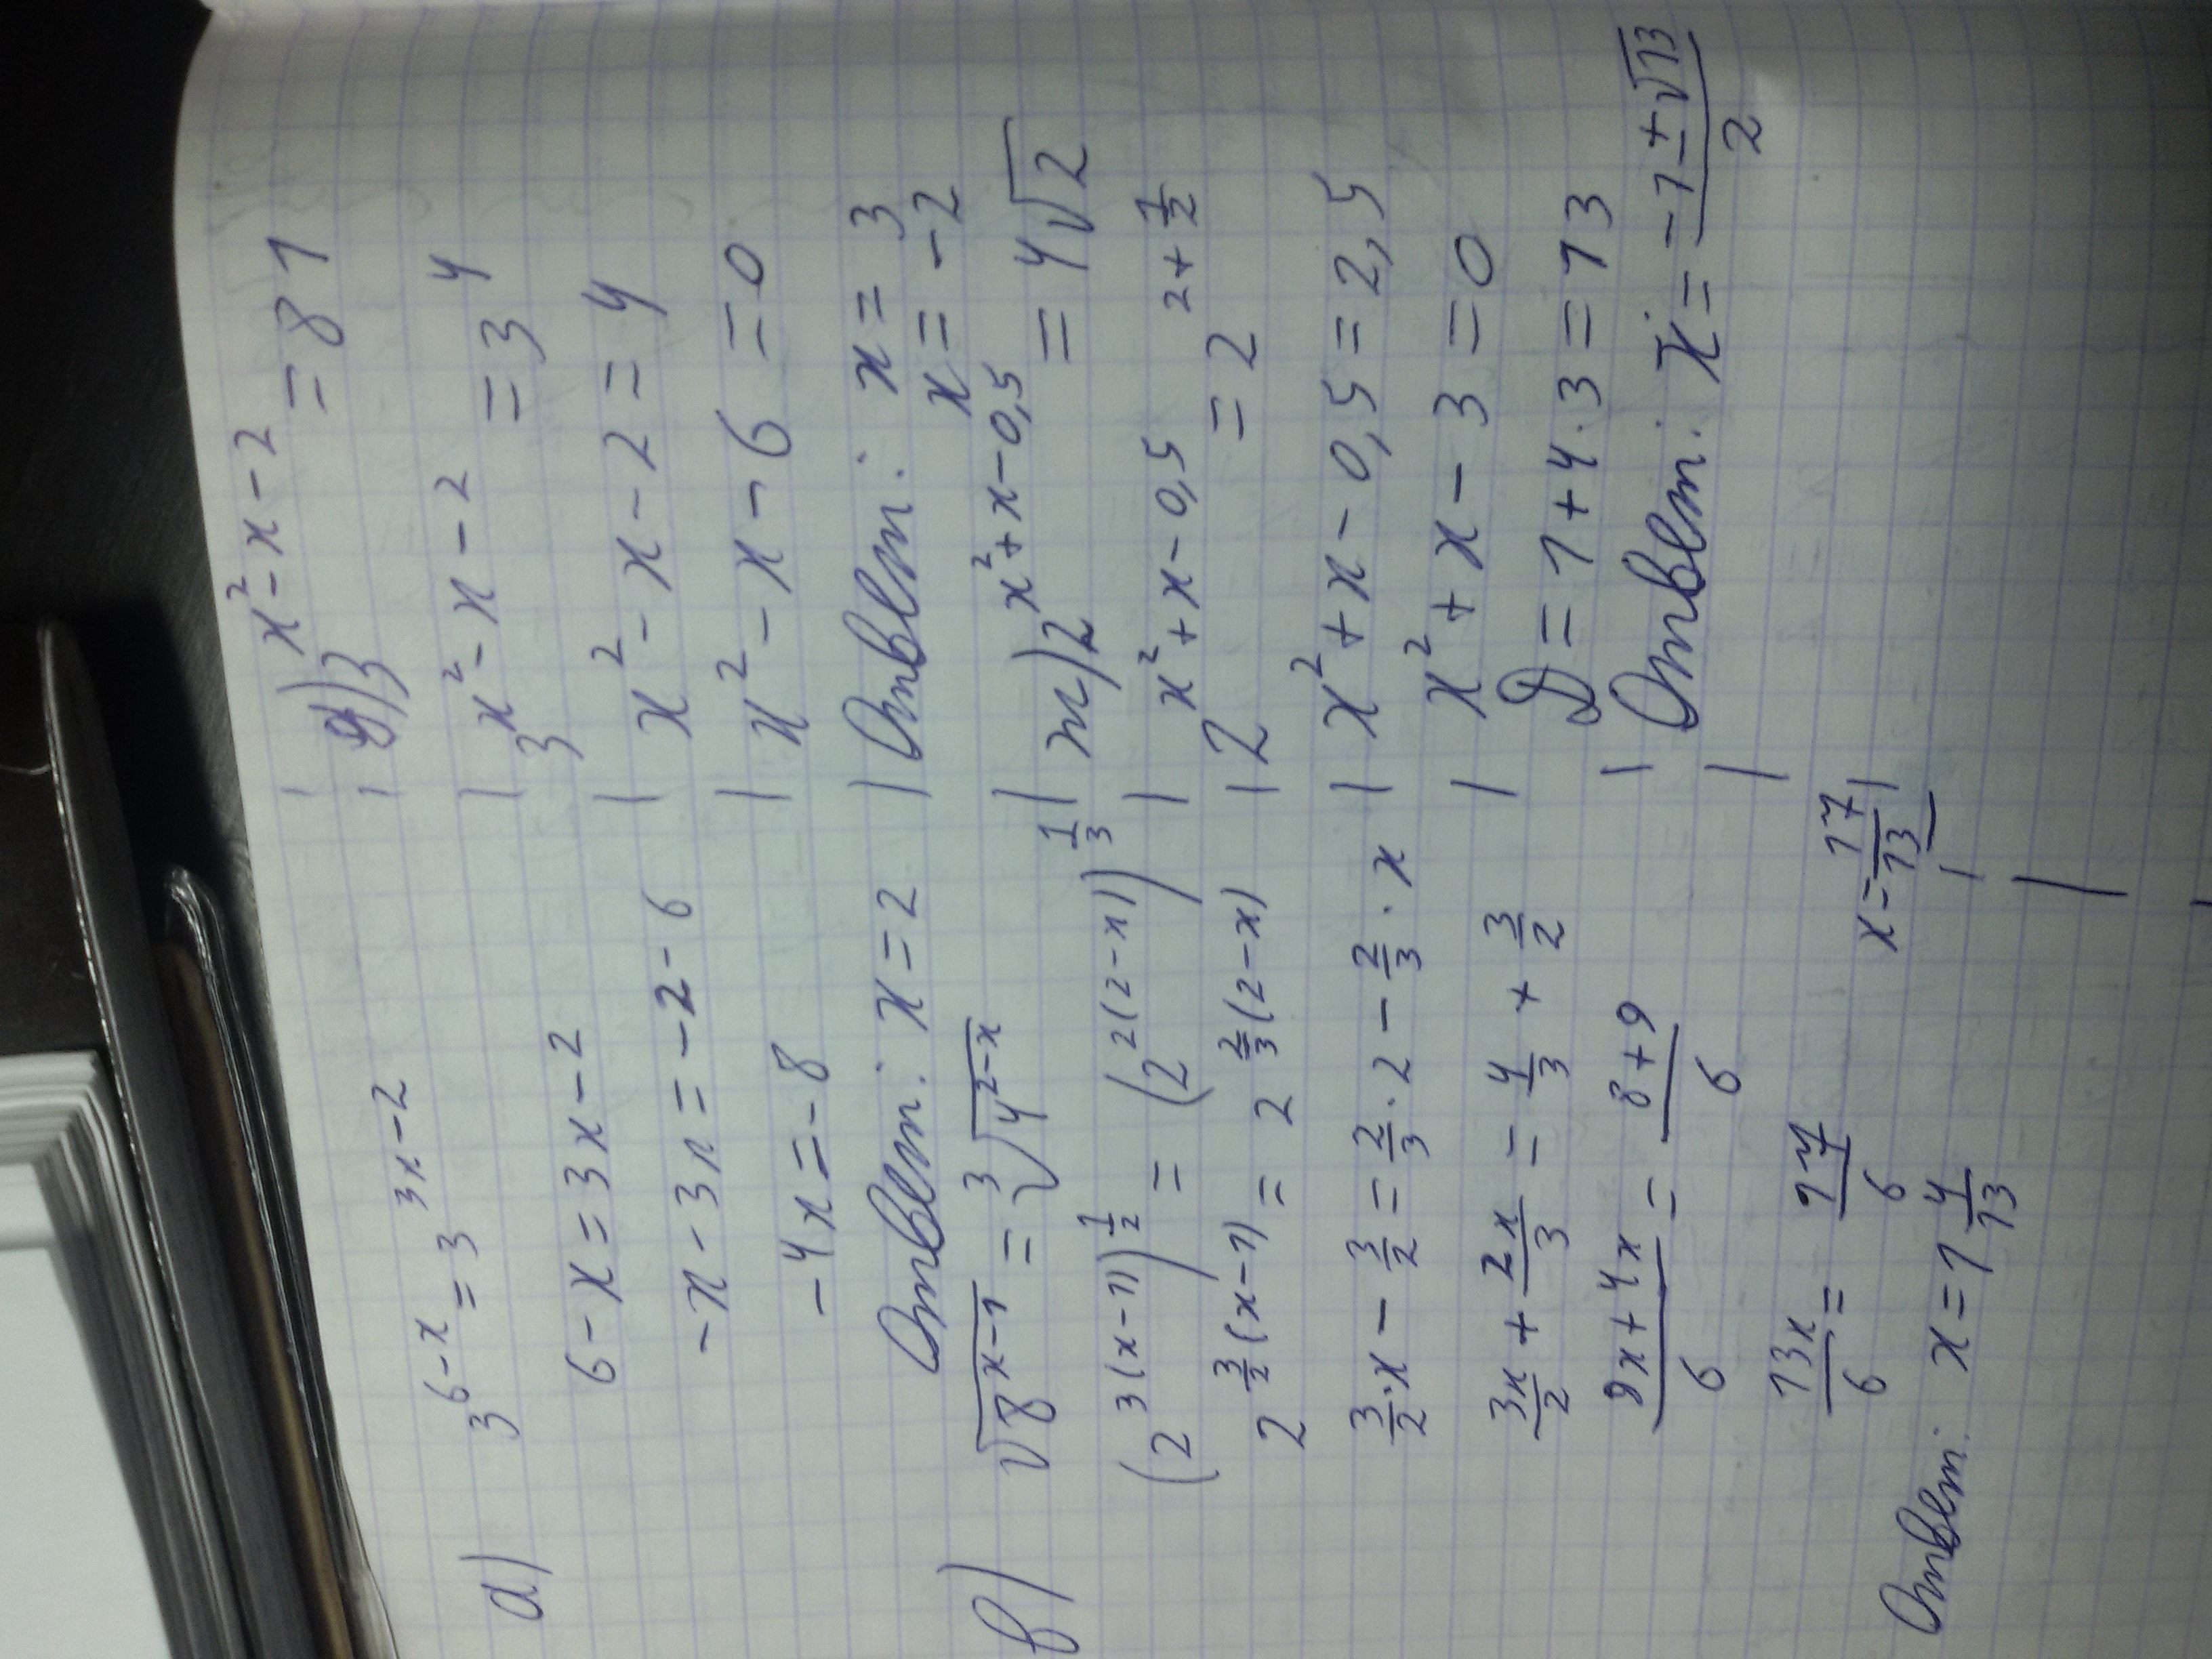 а) 3^{6-x} = 3^{3x-2}
6-x = 3x-2
-x-3x = -2-6
-4x = -8
Ответ: x = 2
в) √(8^{x-1}) = ∛(4^{2-x})
(2^{3(x-1)})^{1/2} = (2^{2(2-x)})^{1/3}
2^{3/2(x-1)} = 2^{2/3(2-x)}
3/2·x - 3/2 = 2/3·2 - 2/3·x
3x/2 + 2x/3 = 4/3 + 3/2
(9x+4x)/6 = (8+9)/6
13x/6 = 17/6
x = 17/13
Ответ: x = 1 4/13
д) 3^{x²-x-2} = 81
3^{x²-x-2} = 3^4
x²-x-2 = 4
x²-x-6 = 0
Ответ: x = 3
x = -2
ж) 2^{x²+x-0,5} = 4√2
2^{x²+x-0,5} = 2^{2+1/2}
x²+x-0,5 = 2,5
x²+x-3 = 0
D = 1+4·3 = 13
Ответ: x = (-1±√13)/2